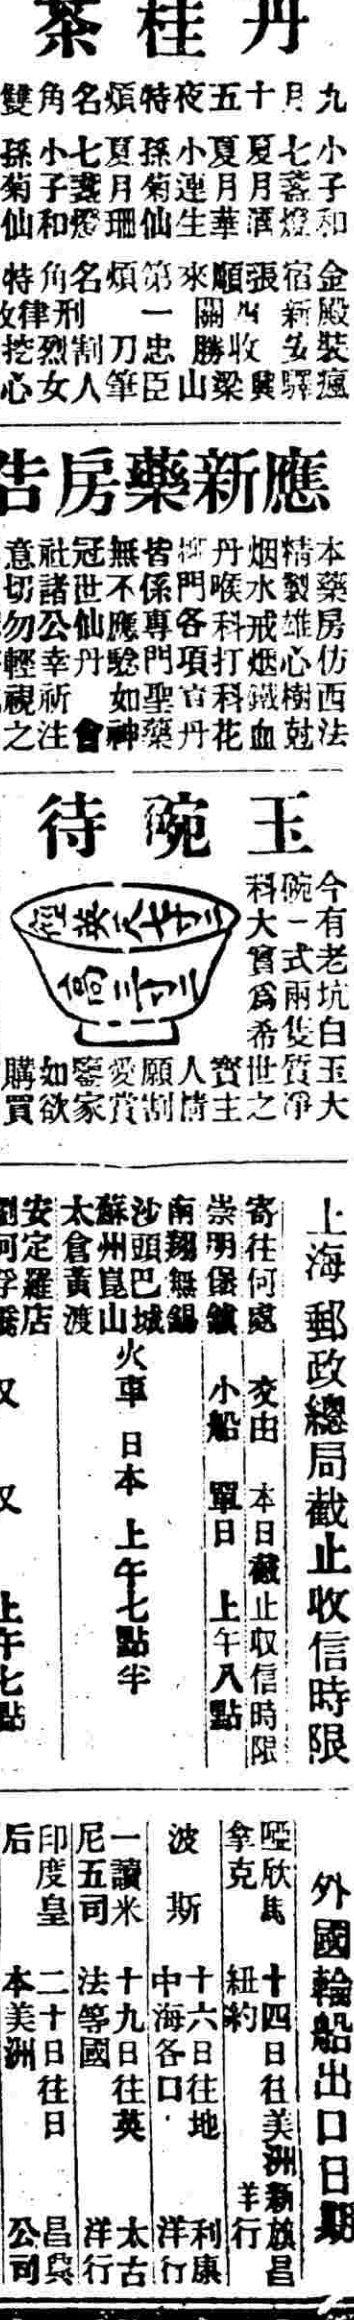 丹桂茶
九月十五夜特煩名角雙
小子和
七盞燈
夏月潤
夏月華
小連生
孫菊仙
夏月珊
七盞燈
小子和
孫菊仙
金殿裝瘋
宿新安驛
張 收
順 收梁
來關勝山
第一忠臣
煩 刀筆
名刑割人
角律烈女
特 挖心
應新藥房告
本藥房仿西法
精製雄心樹尅
烟水戒烟鐵血
丹喉科打科花
柳門各項官丹
皆係專門聖藥
無不應騐如神
冠世仙丹會
社諸公幸祈注
意切勿輕視之
玉碗待
今有老坑白玉大
碗一式兩隻質凈
科大實爲希世之
寳主
人情
願割
愛賞
鑒家
如欲
購買
上海郵政總局截止收信時限
寄往何處 交由 本日截止收信時限
崇明堡鎮 小船 單日 上午八點
南翔無錫
沙頭巴城
蘇州崑山 火車 日本 上午七點半
太倉黃渡
安定羅店
劉河浮橋 又 又 上午七點
外國輪船出口日期
啞欣馬拿克 十四日往美洲新紐約 旗昌洋行
波斯 十六日往地中海各口 利康洋行
一讀米尼五司 十九日往英法等國 太古洋行
印度皇后 二十日往日本美洲 昌興公司